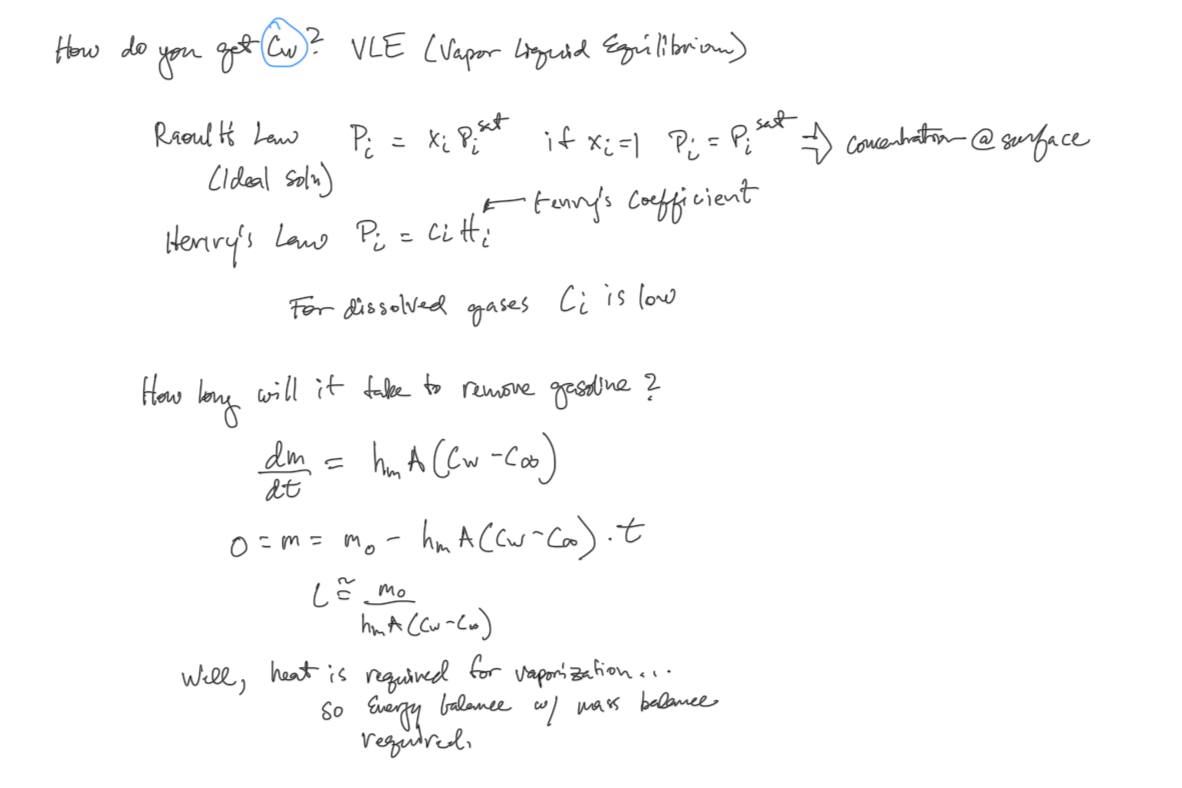 How do you get Cw? VLE (Vapor Liquid Equilibrium)
Raoult's Law Pᵢ = xᵢ Pᵢˢᵃᵗ if xᵢ=1 Pᵢ = Pᵢˢᵃᵗ ⇒ concentration @ surface
(Ideal soln)
Henry's coefficient
Henry's Law Pᵢ = Cᵢ Hᵢ ←
For dissolved gases Cᵢ is low
How long will it take to remove gasoline?
dm/dt = hₘ A (Cw - C∞)
0 = m = m₀ - hₘ A (Cw - C∞) · t
t ≅ m₀ / hₘ A (Cw - C∞)
Well, heat is required for vaporization...
so Energy balance w/ mass balance
required.